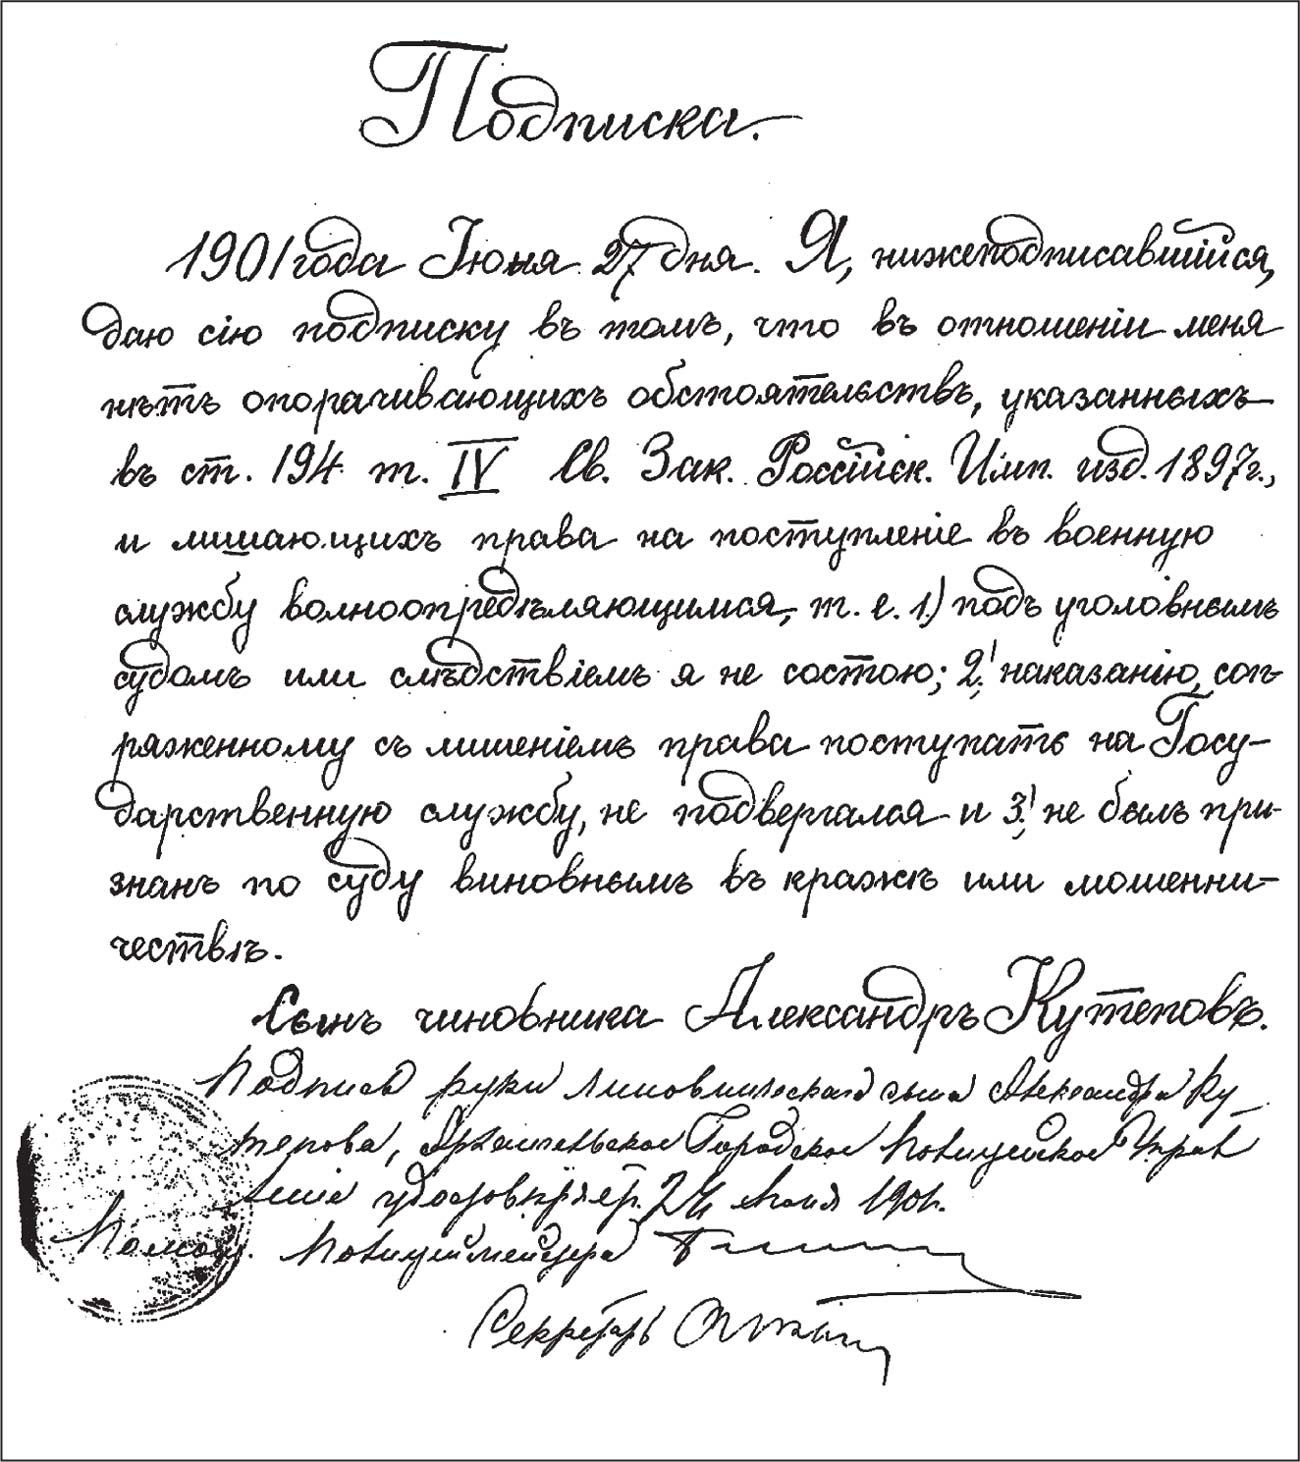 Подписка.
1901 года Іюня 27 дня. Я, нижеподписавшійся,
даю сію подписку въ томъ, что въ отношеніи меня
нѣтъ опорачивающихъ обстоятельствъ, указанныхъ
въ ст. 194 т. IV Св. Зак. Россійск. Имп. изд. 1897 г.,
и лишающихъ права на поступленіе въ военную
службу вольноопредѣляющимся, т. е. 1) подъ уголовнымъ
судомъ или слѣдствіемъ я не состою; 2) наказанію, соп-
ряженному съ лишеніемъ права поступать на Госу-
дарственную службу, не подвергался и 3) не былъ при-
знанъ по суду виновнымъ въ кражѣ или мошенни-
чествѣ.
Сынъ чиновника Александръ Кутеповъ.
Подпись руки чиновническаго сына Александра Ку-
тепова, Архангельское Городское Полицейское Управ
леніе удостовѣряетъ. 1901 г.
Помощ. Полицеймейстера
Секретарь